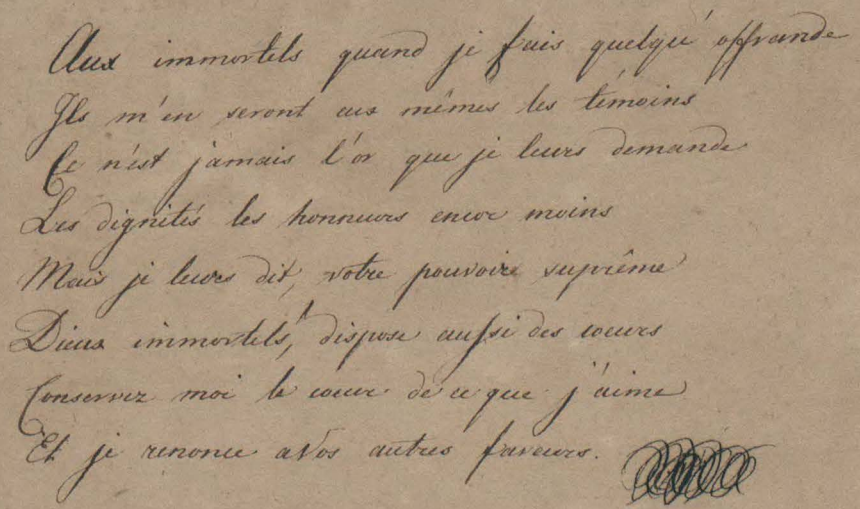 Aux immortels quand je fais quelqu' offrande
Ils m'en seront eux mêmes les témoins
Ce n'est jamais l'or que je leurs demande
Les dignités les honneurs encor moins
Mais je leurs dit, votre pouvoire suprême
Dieux immortels, dispose aussi des coeurs
Conservez moi le coeur de ce que j'aime
Et je renonce a Vos autres faveurs.